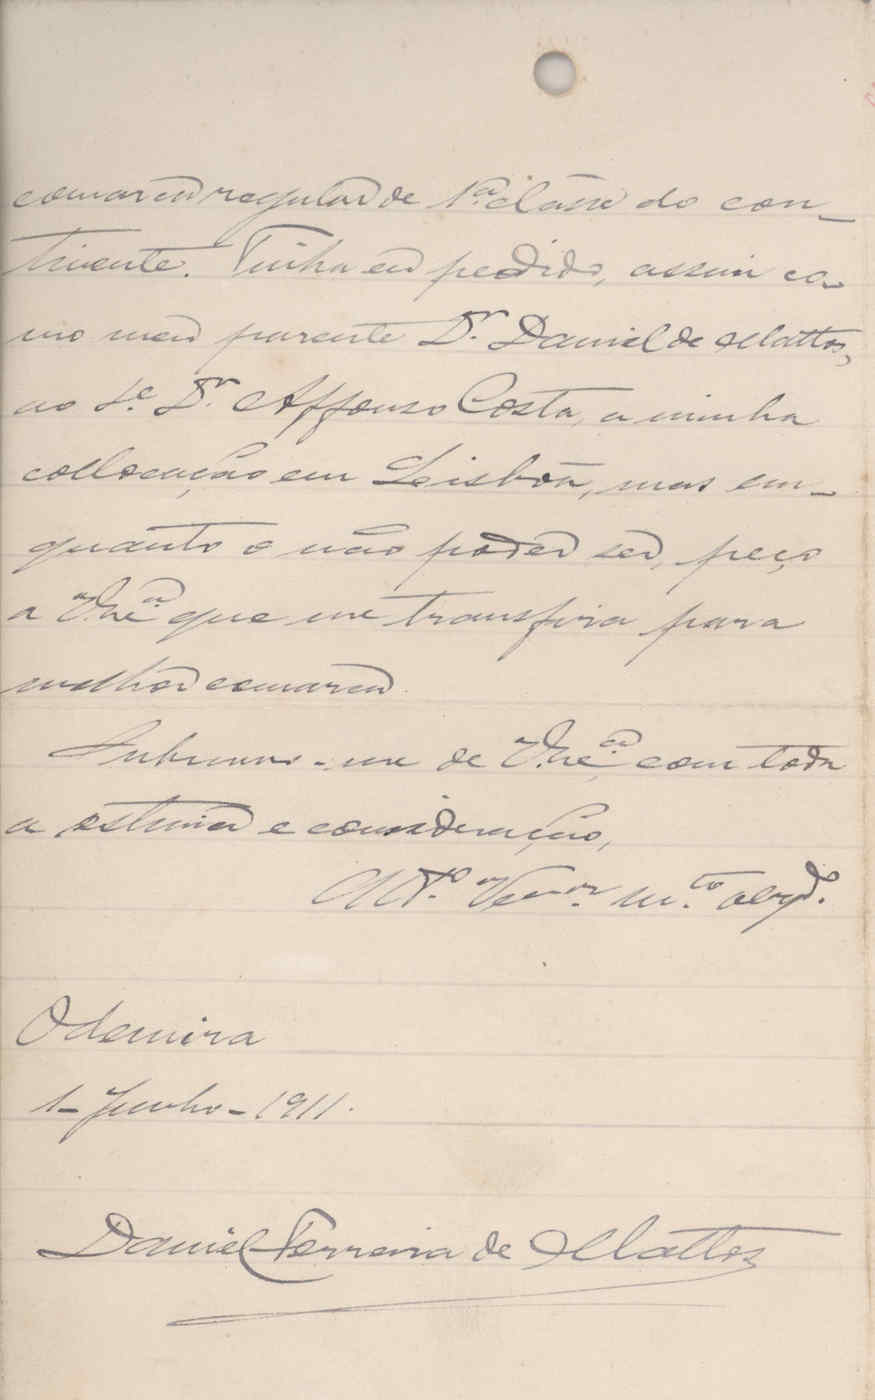 comarca regular de 1.ª classe do con-
tinente. Tinha eu pedido, assim co-
mo meu parente Dr. Daniel de Mattos,
ao Sr. Dr. Affonso Costa, a minha
collocação em Lisboa, mas em-
quanto o não poder ser, peço
a V. Ex.ª que me transfira para
melhor comarca.
Subscrevo-me de V. Ex.ª com toda
a estima e consideração,
At.º Ven.or m.to obg.do
Odemira
1-Junho-1911.
Daniel Ferreira de Mattos